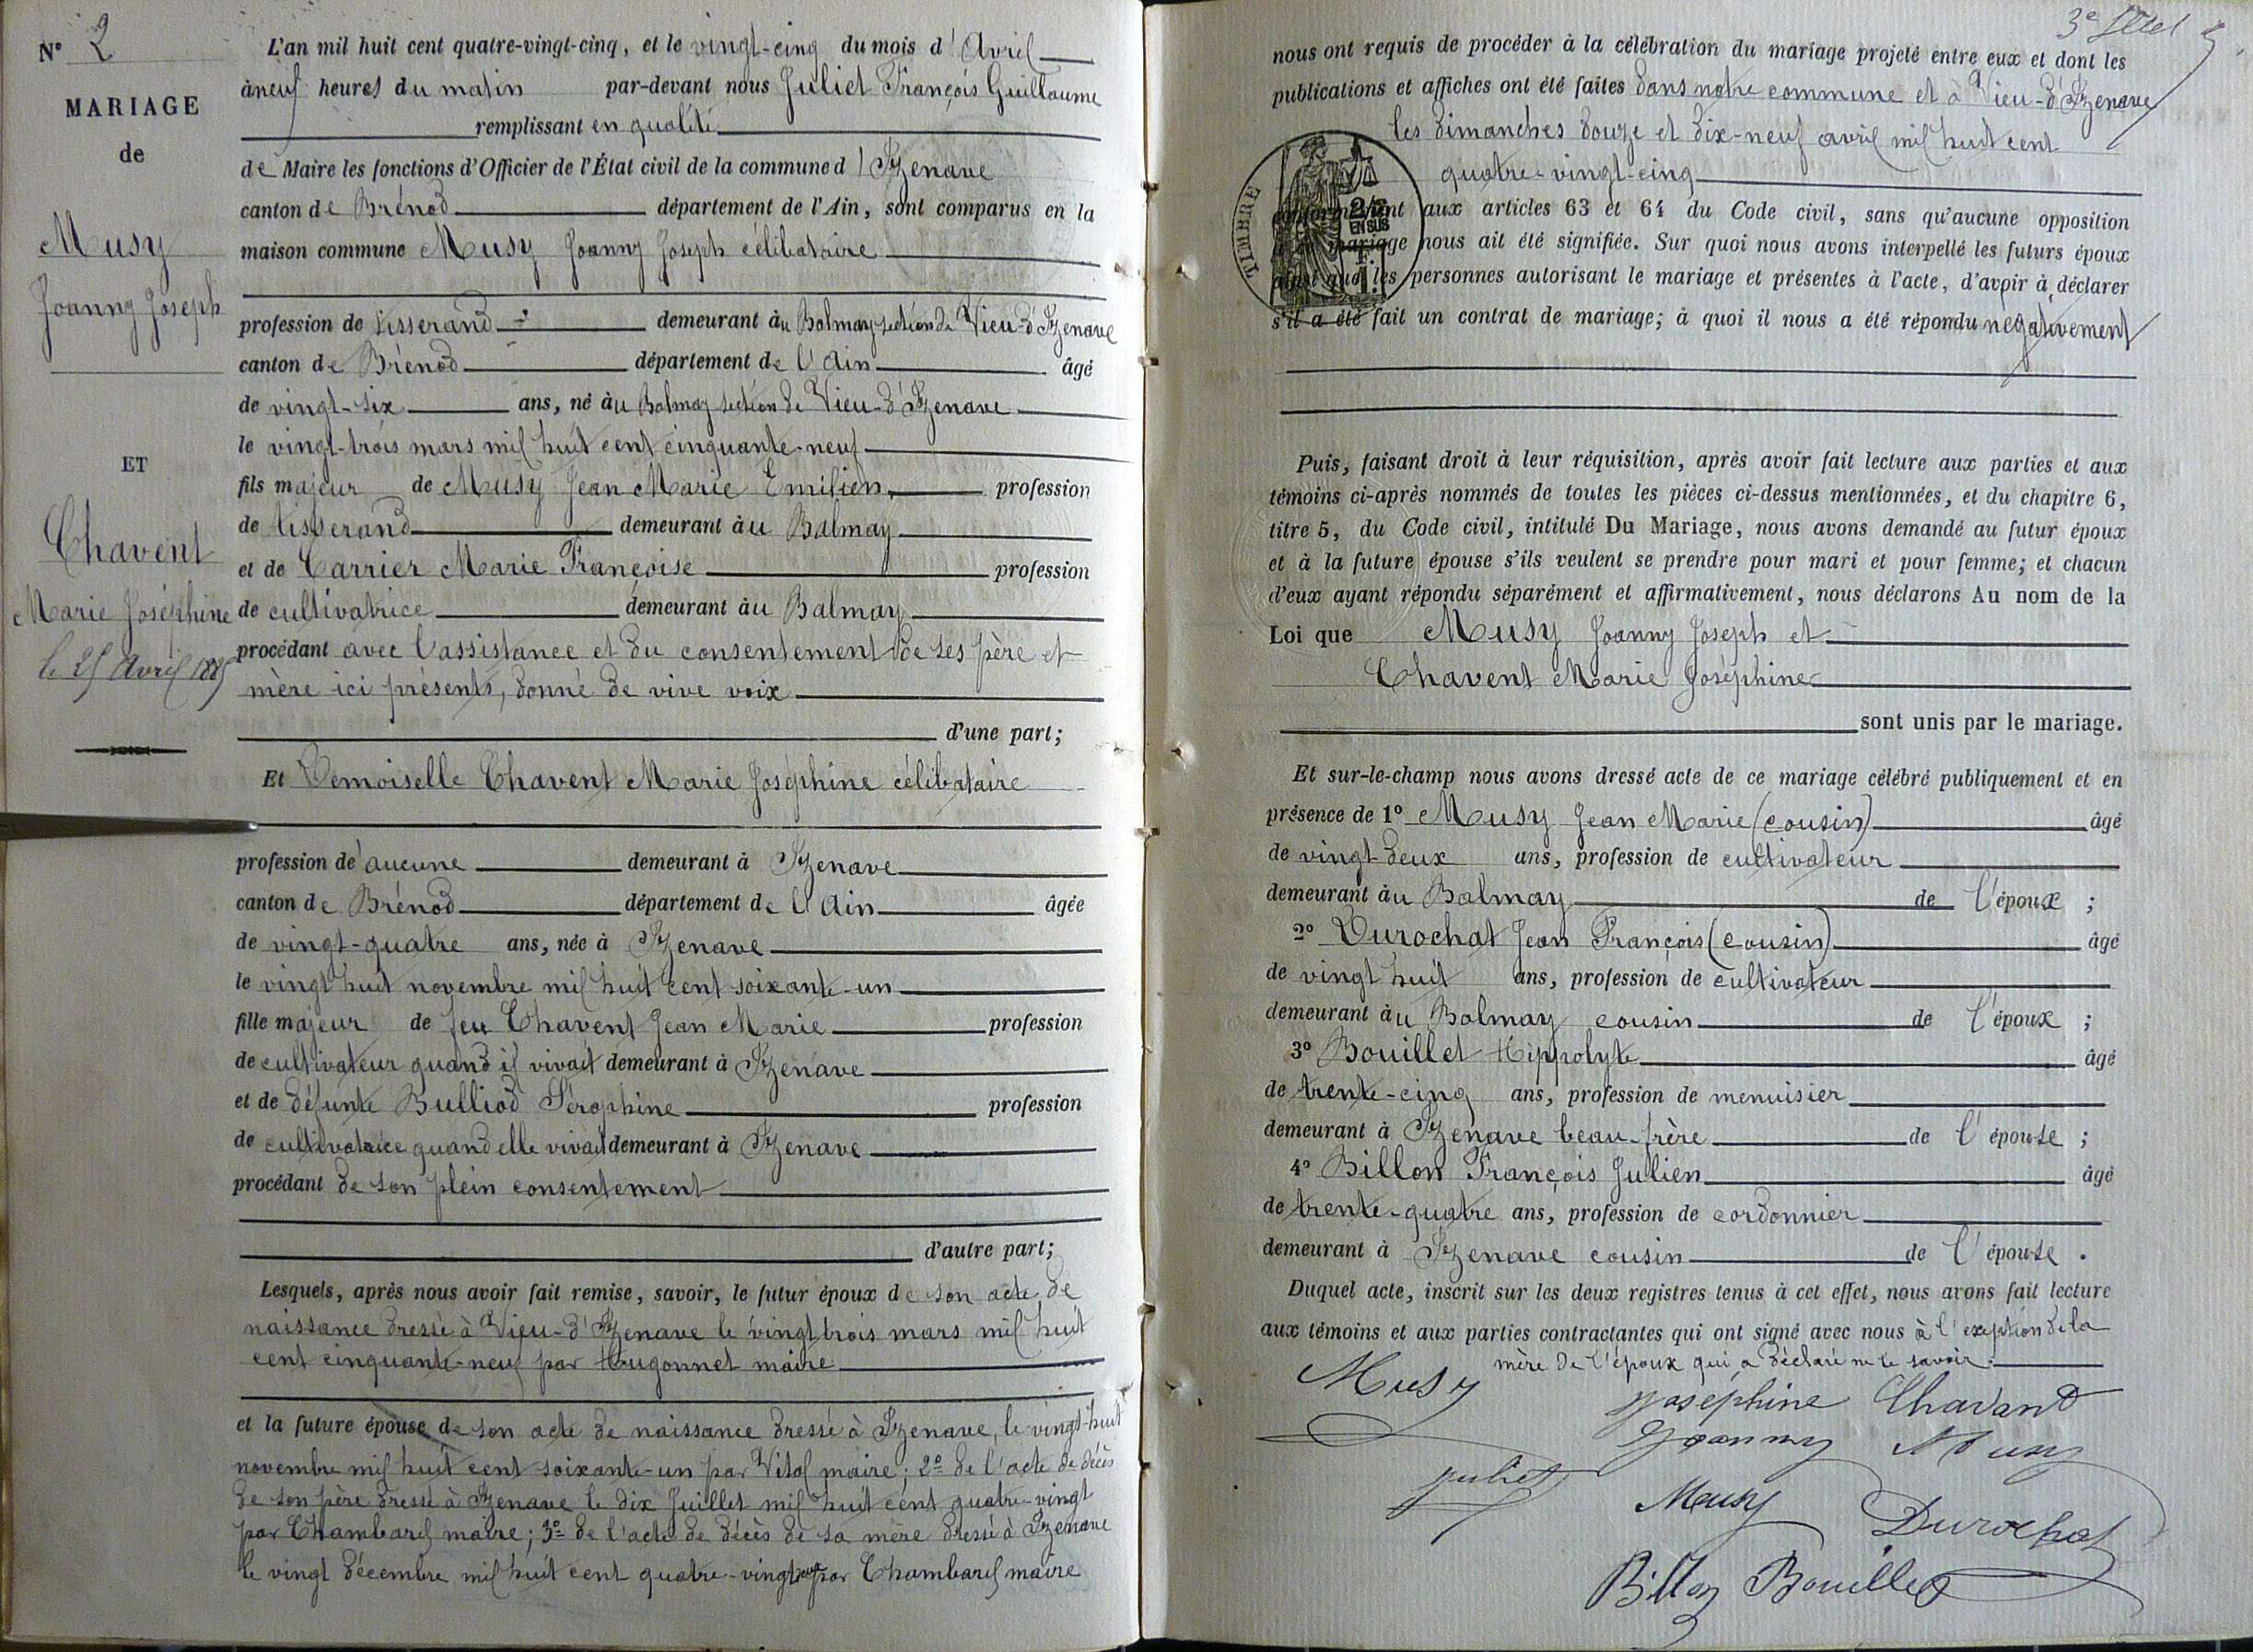 N° 2
MARIAGE
de
Musy
Joanny Joseph
ET
Chavent
Marie Joséphine
le 25 Avril 1885
L'an mil huit cent quatre-vingt-cinq, et le vingt-cinq du mois d'Avril
à neuf heures du matin par-devant nous Juliet François Guillaume
remplissant en qualité
de Maire les fonctions d'Officier de l'État civil de la commune d'Izenave
canton de Brénod département de l'Ain, sont comparus en la
maison commune Musy Joanny Joseph célibataire
profession de tisserand demeurant àu Balmay section de Vieu-d'Izenave
canton de Brénod département de l'Ain âgé
de vingt-six ans, né àu Balmay section de Vieu-d'Izenave
le vingt-trois mars mil huit cent cinquante-neuf
fils majeur de Musy Jean Marie Emilien profession
de tisserand demeurant àu Balmay
et de Carrier Marie Françoise profession
de cultivatrice demeurant àu Balmay
procédant avec l'assistance et du consentement de ses père et
mère ici présents, donné de vive voix
d'une part;
Et Demoiselle Chavent Marie Joséphine célibataire
profession de aucune demeurant à Izenave
canton de Brénod département de l'Ain âgée
de vingt-quatre ans, née à Izenave
le vingt huit novembre mil huit cent soixante-un
fille majeur de feu Chavent Jean Marie profession
de cultivateur quand il vivait demeurant à Izenave
et de défunte Bulliod Séraphine profession
de cultivatrice quand elle vivait demeurant à Izenave
procédant de son plein consentement
d'autre part;
Lesquels, après nous avoir fait remise, savoir, le futur époux de son acte de
naissance dressé à Vieu-d'Izenave le vingt trois mars mil huit
cent cinquante-neuf par Hugonnet maire
et la future épouse de son acte de naissance dressé à Izenave, le vingt-huit
novembre mil huit cent soixante-un par Vital maire; 2° de l'acte de décès
de son père dressé à Izenave le dix Juillet mil huit cent quatre-vingt
par Chambard maire; 3° de l'acte de décès de sa mère dressé à Izenave
le vingt décembre mil huit cent quatre-vingt par Chambard maire
nous ont requis de procéder à la célébration du mariage projeté entre eux et dont les
publications et affiches ont été faites dans notre commune et à Vieu-d'Izenave
les dimanches douze et dix-neuf avril mil huit cent
quatre-vingt-cinq
TIMBRE
conformément aux articles 63 et 64 du Code civil, sans qu'aucune opposition
mariage nous ait été signifiée. Sur quoi nous avons interpellé les futurs époux
ainsi que les personnes autorisant le mariage et présentes à l'acte, d'avoir à déclarer
s'il a été fait un contrat de mariage; à quoi il nous a été répondu négativement
Puis, faisant droit à leur réquisition, après avoir fait lecture aux parties et aux
témoins ci-après nommés de toutes les pièces ci-dessus mentionnées, et du chapitre 6,
titre 5, du Code civil, intitulé Du Mariage, nous avons demandé au futur époux
et à la future épouse s'ils veulent se prendre pour mari et pour femme; et chacun
d'eux ayant répondu séparément et affirmativement, nous déclarons Au nom de la
Loi que Musy Joanny Joseph et
Chavent Marie Joséphine
sont unis par le mariage.
Et sur-le-champ nous avons dressé acte de ce mariage célébré publiquement et en
présence de 1° Musy Jean Marie (cousin) âgé
de vingt deux ans, profession de cultivateur
demeurant àu Balmay de l'époux ;
2° Durochat Jean François (cousin) âgé
de vingt huit ans, profession de cultivateur
demeurant àu Balmay cousin de l'époux ;
3° Bouillet Hippolyte âgé
de trente-cinq ans, profession de menuisier
demeurant à Izenave beau-frère de l'épouse ;
4° Billon François Julien âgé
de trente-quatre ans, profession de cordonnier
demeurant à Izenave cousin de l'épouse .
Duquel acte, inscrit sur les deux registres tenus à cet effet, nous avons fait lecture
aux témoins et aux parties contractantes qui ont signé avec nous à l'exeption de la
mère de l'époux qui a déclaré ne le savoir.
Musy Joséphine Chavant
Joanny Musy
Juliet Musy Durochat
Billon Bouillet